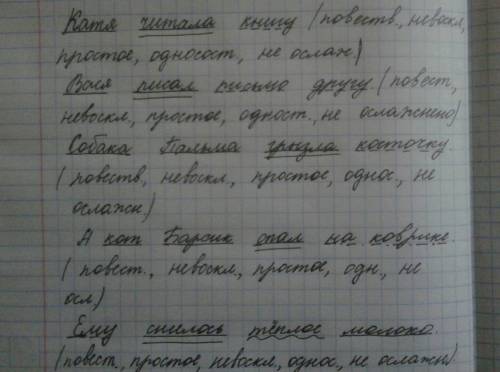 Катя читала книгу (повеств., невоскл,
простое, односост, не ослаж)
Вася писал письмо другу. (повест,
невоскл, простое, одност., не ослажнено)
Собака Пальма грызла косточку.
(повеств, невоскл., простое, однос., не
ослажн)
А кот Барсик спал на коврике.
(повест., невоскл, простое, одн., не
осл)
Ему снилось тёплое молоко.
(повест., простое, невоскл, однос., не ослажн)